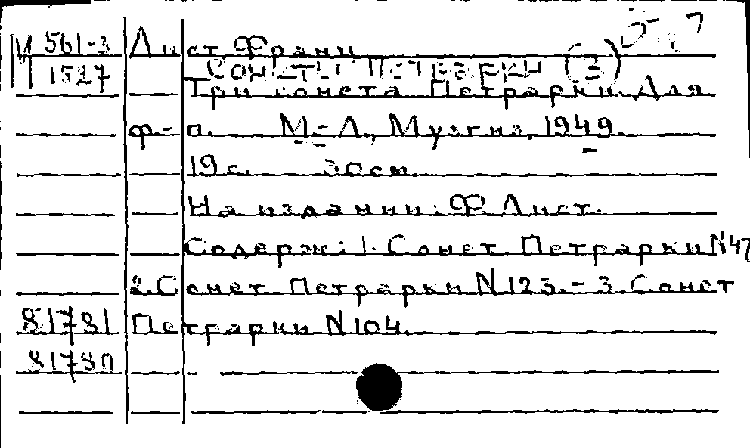 М 561-3 Лист Франц
1527 Сонеты Петрарки (3)
Три сонета Петрарки. Для
ф-п. М.-Л., Музгиз, 1949.
19 с. 30 см.
На издании: Ф. Лист.
Содерж: 1. Сонет Петрарки N47
2. Сонет Петрарки N123. - 3. Сонет
81781 Петрарки N104.
81780